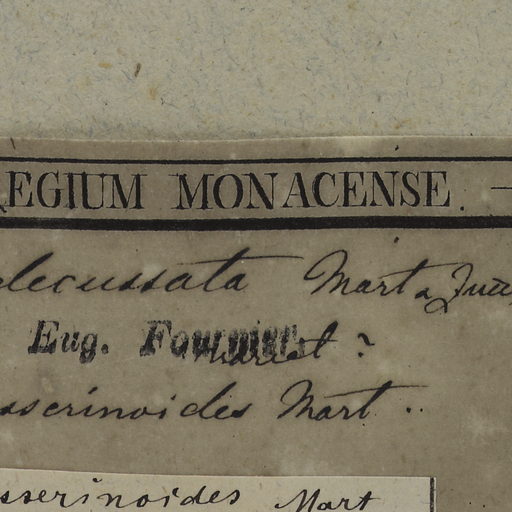 EGIUM MONACENSE. —
decussata Mart & Zucc
Eug. Fournier.
sserinoides Mart ..
sserinoides Mart